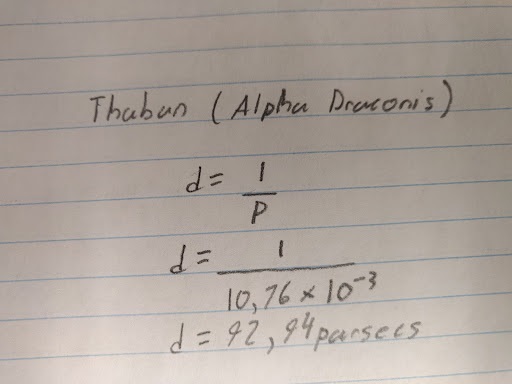 Thuban (Alpha Draconis)
d = 1/P
d = 1/10,76 × 10⁻³
d = 92,94 parsecs